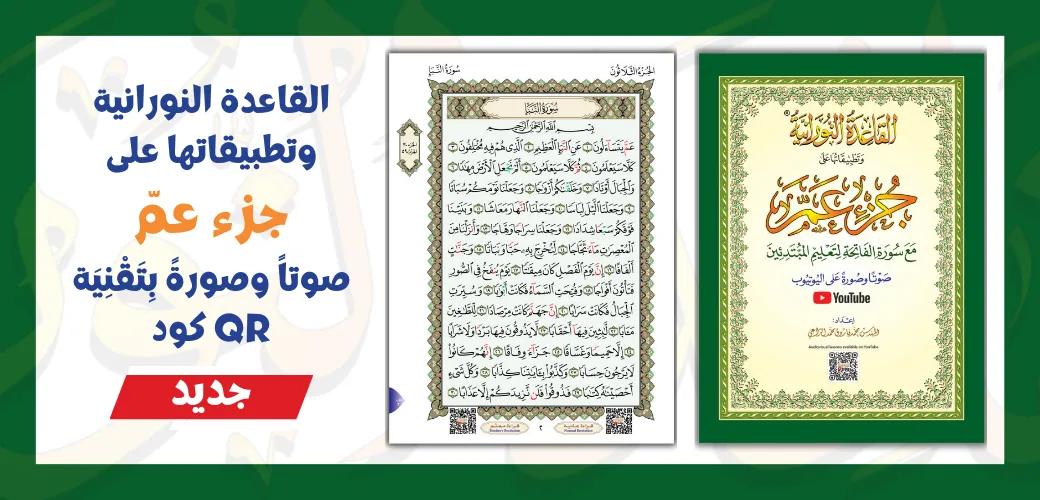 القاعدة النورانية
وتطبيقاتها على
جزء عمّ
صوتاً وصورةً بِتَقْنِيَة
QR كود
جديد
سورة النبإ
الجزء الثلاثون
سورة النبإ
بسم الله الرحمن الرحيم
عم يتساءلون ١ عن النبإ العظيم ٢ الذي هم فيه مختلفون ٣
كلا سيعلمون ٤ ثم كلا سيعلمون ٥ ألم نجعل الأرض مهدا ٦
والجبال أوتادا ٧ وخلقنكم أزوجا ٨ وجعلنا نومكم سباتا
٩ وجعلنا اليل لباسا ١٠ وجعلنا النهار معاشا ١١ وبنينا
فوقكم سبعا شدادا ١٢ وجعلنا سراجا وهاجا ١٣ وأنزلنا من
المعصرت ماء ثجاجا ١٤ لنخرج به حبا ونباتا ١٥ وجنت
ألفافا ١٦ إن يوم الفصل كان ميقتا ١٧ يوم ينفخ في الصور
فتأتون أفواجا ١٨ وفتحت السماء فكانت أبوبا ١٩ وسيرت
الجبال فكانت سرابا ٢٠ إن جهنم كانت مرصادا ٢١ للطغين
مئابا ٢٢ لبثين فيها أحقابا ٢٣ لا يذوقون فيها بردا ولا شرابا
٢٤ إلا حميما وغساقا ٢٥ جزاء وفاقا ٢٦ إنهم كانوا
لا يرجون حسابا ٢٧ وكذبوا بئايتنا كذابا ٢٨ وكل شيء
أحصينه كتبا ٢٩ فذوقوا فلن نزيدكم إلا عذابا ٣٠
قراءة معلم
Teacher's Recitation
٢
قراءة عادية
Normal Recitation
القاعدة النورانية
وتطبيقاتها على
جزء عم
مع سورة الفاتحة لتعليم المبتدئين
صوتا وصورة على اليوتيوب
YouTube
إعداد:
Audiovisual lessons available on YouTube